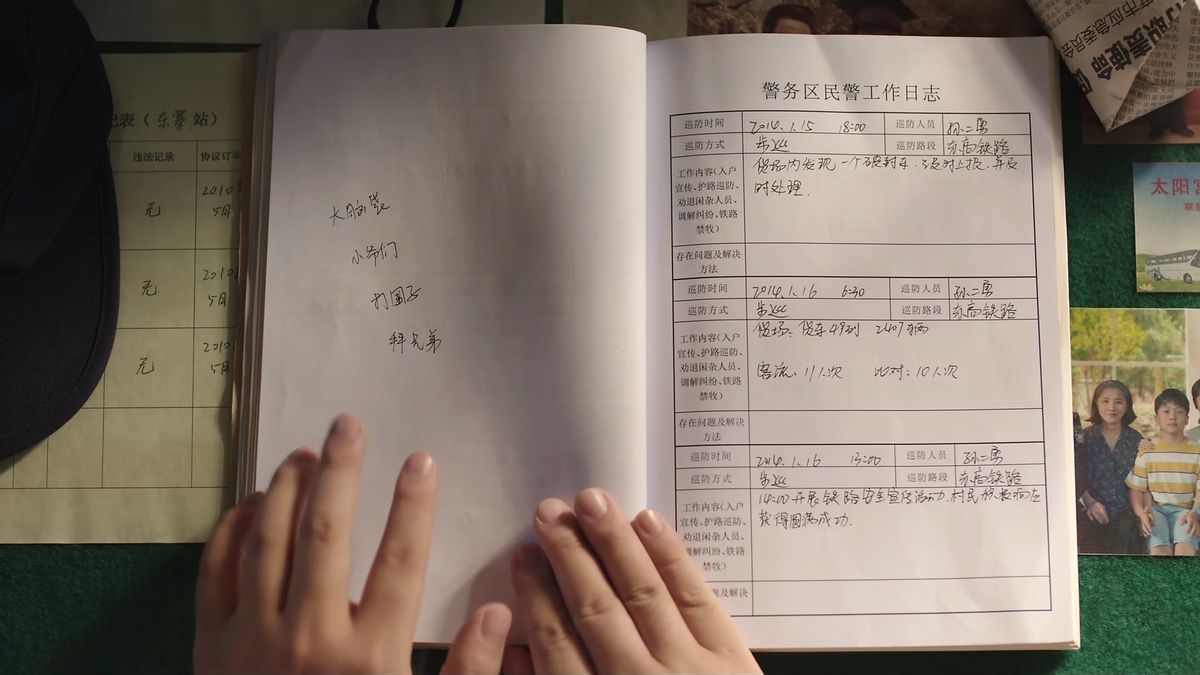 记表（东寨站）
违法记录 协议订单
无 2010
5月
无 2010
5月
无 2010
5月
大脑袋
小爷们
打国子
拜兄弟
警务区民警工作日志
巡防时间 2014.1.15 18:00 巡防人员 孙二勇
巡防方式 步巡 巡防路段 东高铁路
工作内容(入户宣传、护路巡防、劝退闲杂人员、调解纠纷、铁路禁牧)
货场内发现一个 封车. 及时上报, 并及
时处理.
存在问题及解决方法
巡防时间 2014.1.16 6:30 巡防人员 孙二勇
巡防方式 步巡 巡防路段 东高铁路
工作内容(入户宣传、护路巡防、劝退闲杂人员、调解纠纷、铁路禁牧)
货场: 货车49列 2407辆
客流: 11人次 比对: 10人次
存在问题及解决方法
巡防时间 2014.1.16 13:00 巡防人员 孙二勇
巡防方式 步巡 巡防路段 东高铁路
工作内容(入户宣传、护路巡防、劝退闲杂人员、调解纠纷、铁路禁牧)
14:00开展铁路安全宣传活动, 村民积极响应
获得圆满成功.
题及解决
职责使命
市应急委员会
太阳宫